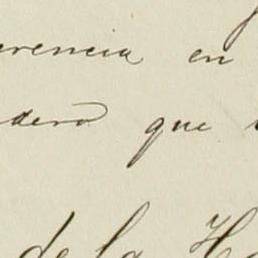 erencia en
dero que
de la H